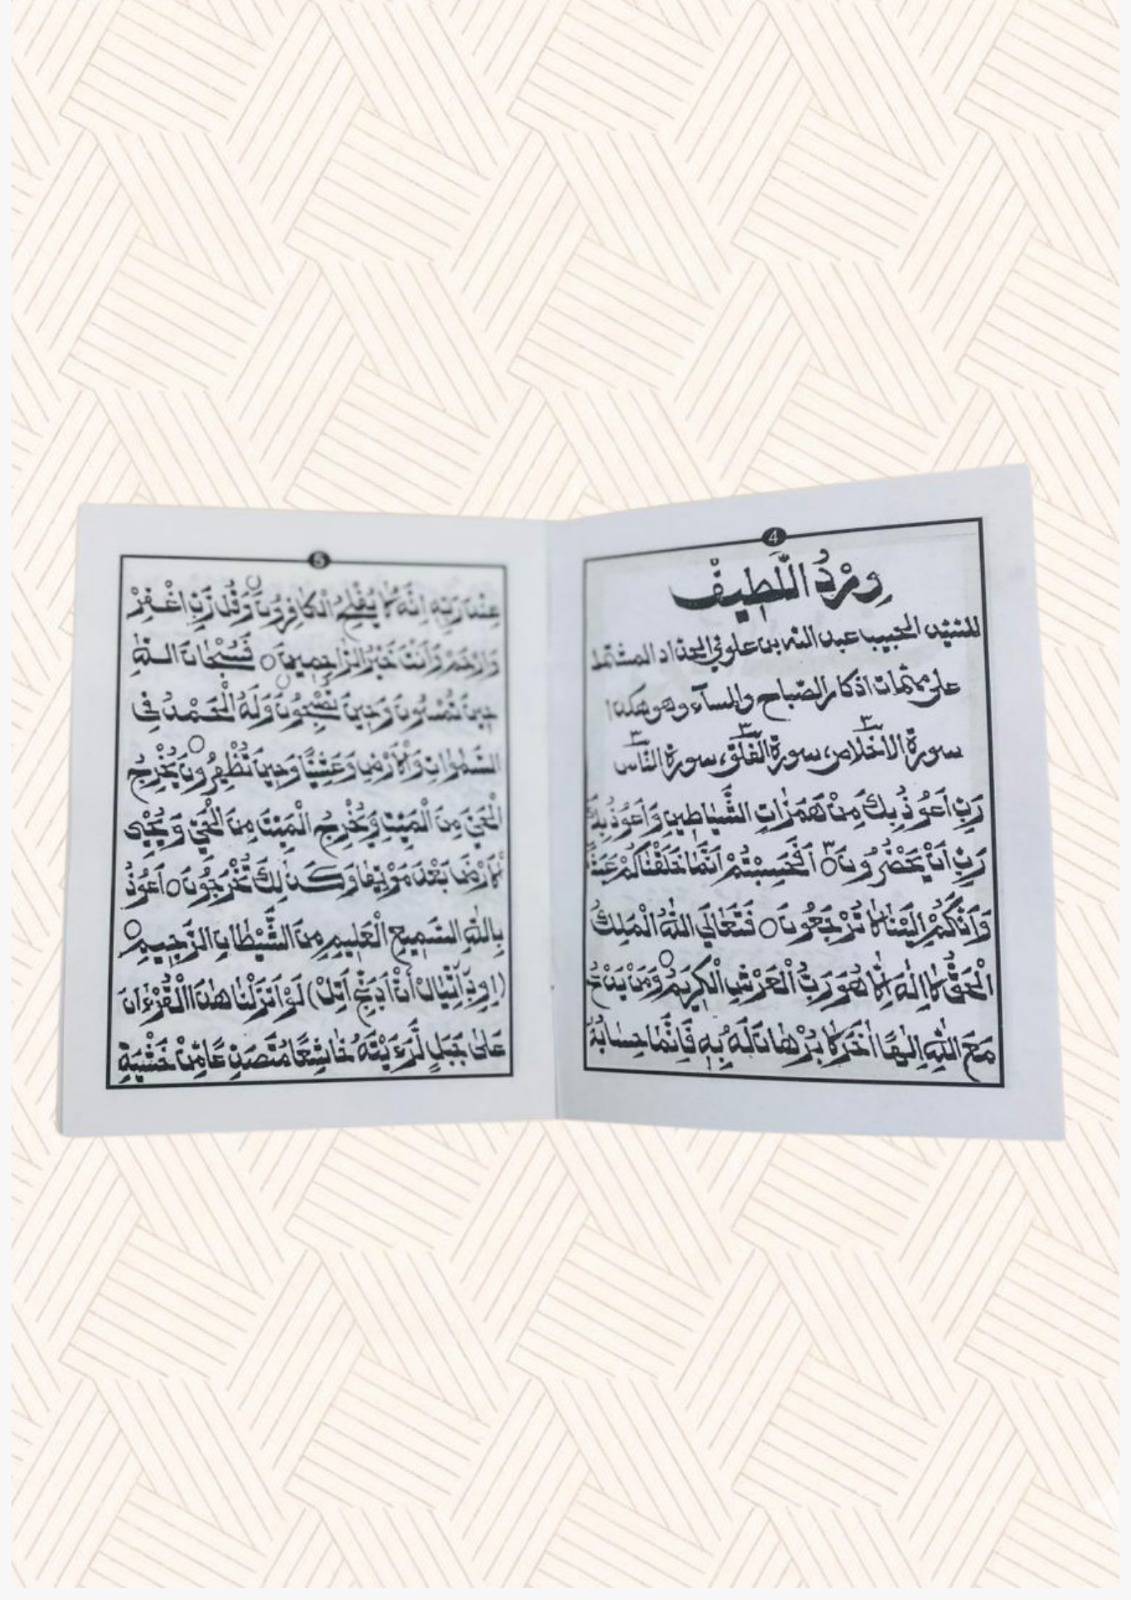 4
وِرْدُ اللَّطِيفْ
للسيد الحبيب عبد الله بن علوي الحداد المشتمل
على مهمات اذكار الصباح والمساء وهو هكذا
سورة الاخلاص ٣، سورة الفلق ٣، سورة الناس ٣
رَبِّ اَعُوْذُ بِكَ مِنْ هَمَزَاتِ الشَّيَاطِينِ وَاَعُوْذُ بِكَ
رَبِّ اَنْ يَحْضُرُوْنَ ٣ اَفَحَسِبْتُمْ اَنَّمَا خَلَقْنَاكُمْ عَبَثًا
وَاَنَّكُمْ اِلَيْنَا لَا تُرْجَعُوْنَ ○ فَتَعَالَى اللهُ الْمَلِكُ
الْحَقُّ لَا اِلٰهَ اِلَّا هُوَ رَبُّ الْعَرْشِ الْكَرِيْمِ ○ وَمَنْ يَدْعُ
مَعَ اللهِ اِلٰهًا اٰخَرَ لَا بُرْهَانَ لَهُ بِهِ فَاِنَّمَا حِسَابُهُ
5
عِنْدَ رَبِّهِ اِنَّهُ لَا يُفْلِحُ الْكَافِرُوْنَ ○ وَقُلْ رَبِّ اغْفِرْ
وَارْحَمْ وَاَنْتَ خَيْرُ الرَّاحِمِيْنَ ○ فَسُبْحَانَ اللهِ
حِيْنَ تُمْسُوْنَ وَحِيْنَ تُصْبِحُوْنَ ○ وَلَهُ الْحَمْدُ فِى
السَّمٰوَاتِ وَالْاَرْضِ وَعَشِيًّا وَحِيْنَ تُظْهِرُوْنَ ○ يُخْرِجُ
الْحَيَّ مِنَ الْمَيِّتِ وَيُخْرِجُ الْمَيِّتَ مِنَ الْحَيِّ وَيُحْيِى
الْاَرْضَ بَعْدَ مَوْتِهَا وَكَذٰلِكَ تُخْرَجُوْنَ ○ اَعُوْذُ
بِاللهِ السَّمِيْعِ الْعَلِيْمِ مِنَ الشَّيْطَانِ الرَّجِيْمِ ○
لَوْ اَنْزَلْنَا هٰذَا الْقُرْءَانَ
عَلَى جَبَلٍ لَّرَءَيْتَهُ خَاشِعًا مُتَصَدِّعًا مِنْ خَشْيَةِ